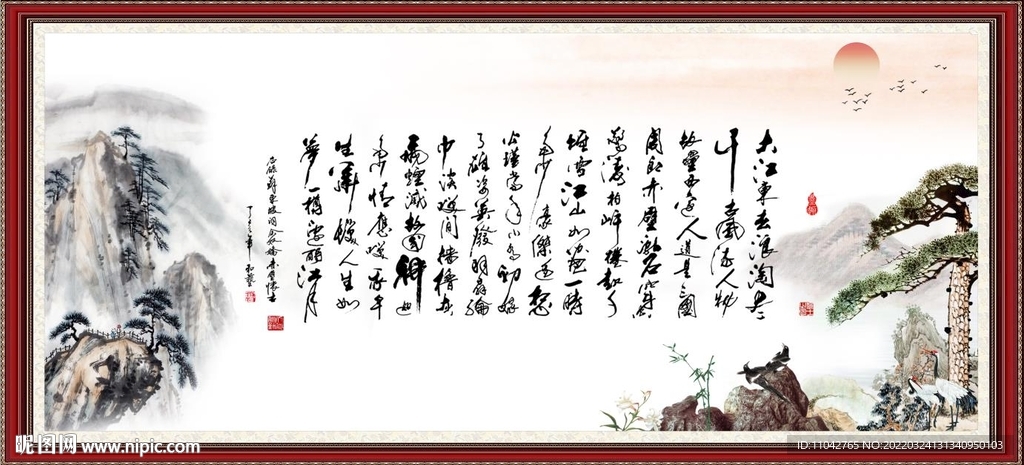 大江東去浪淘盡
千古風流人物
故壘西邊人道是三國
周郎赤壁亂石穿
驚濤拍岸捲起千
堆雪江山如畫一時
多少豪傑遥想
公瑾當年小喬初嫁
了雄姿英發羽扇綸
巾談笑間檣櫓灰
煙滅故國神
多情應笑我早
生華髮人生如
夢一樽還酹江月
蘇東坡詞念奴嬌赤壁懷古
昵图网 www.nipic.com
ID:11042765 NO:20220324131340950103